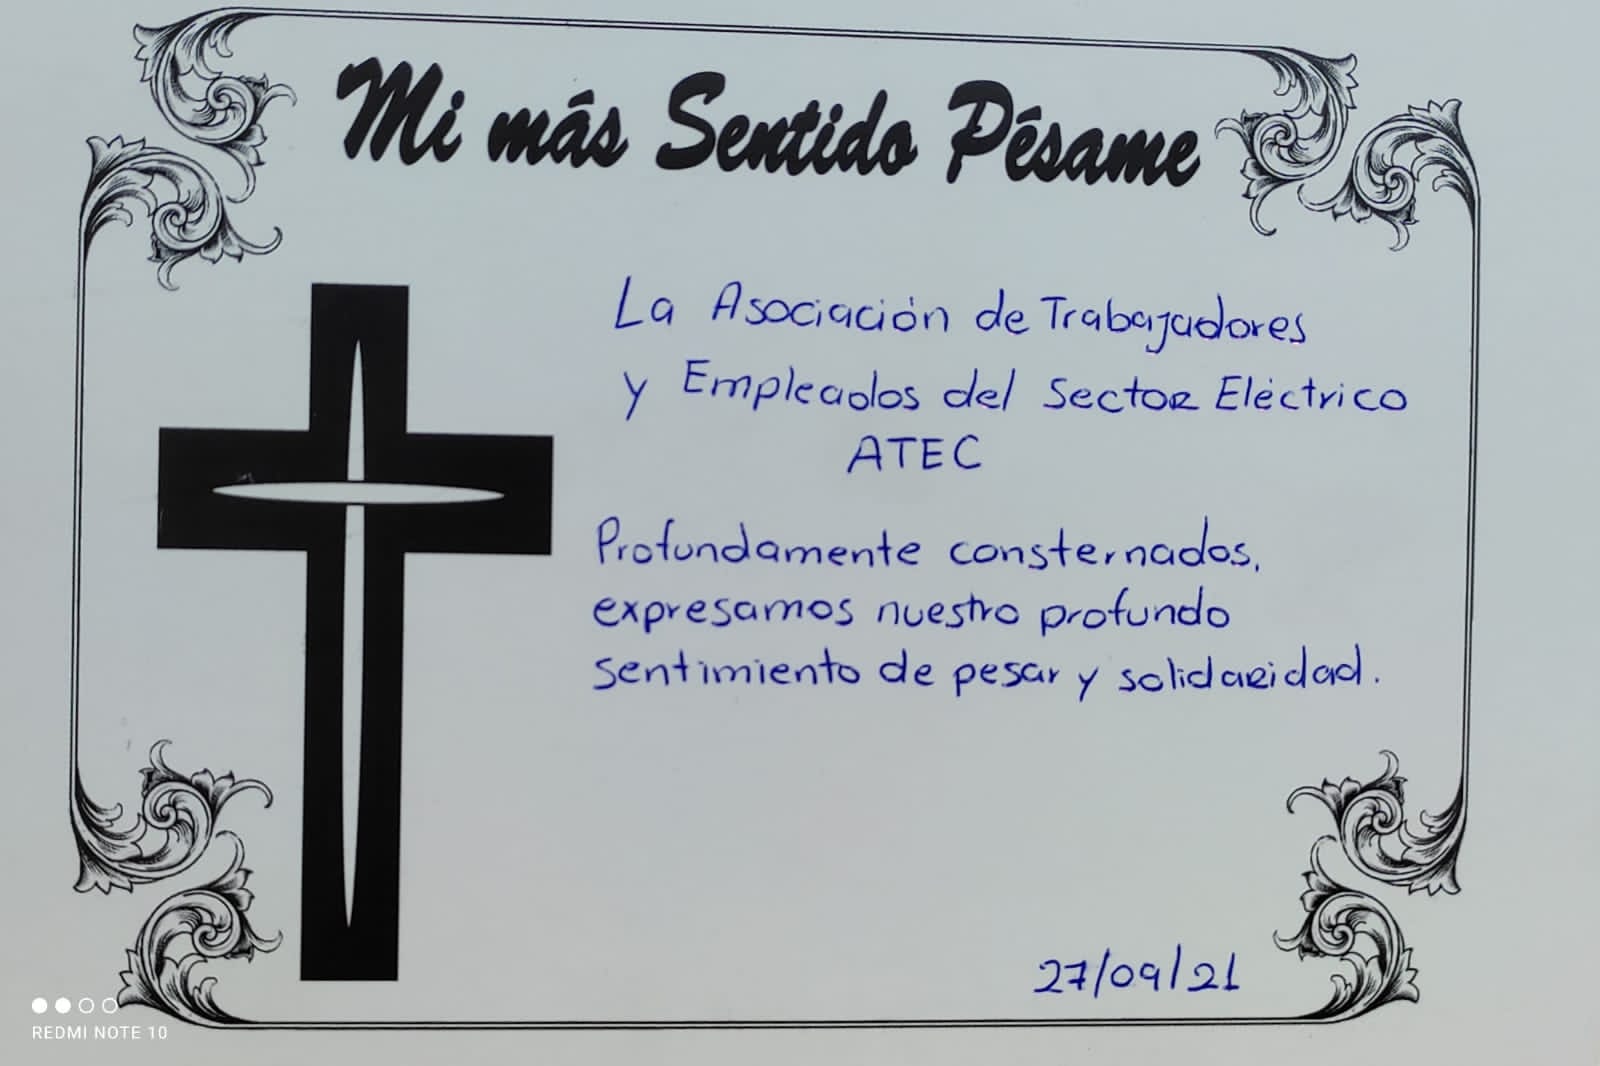 Mi más Sentido Pésame
La Asociación de Trabajadores
y Empleados del Sector Eléctrico
ATEC
Profundamente consternados,
expresamos nuestro profundo
sentimiento de pesar y solidaridad.
27/09/21
REDMI NOTE 10